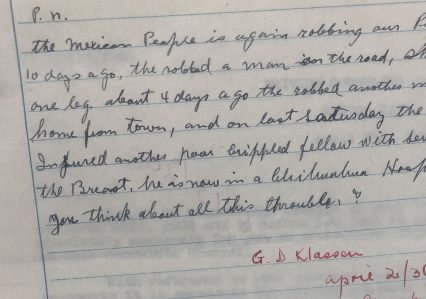 P. n.
the Mexican People is again robbing our
10 days ago, the robbed a man on the road,
one leg about 4 days ago the robbed another
home from town, and on last Satusday the
Injured another poor crippled fellow with
the Breast, he is now in a Chihuahua
you think about all this throuble, ?
G. D Klassen
april 2